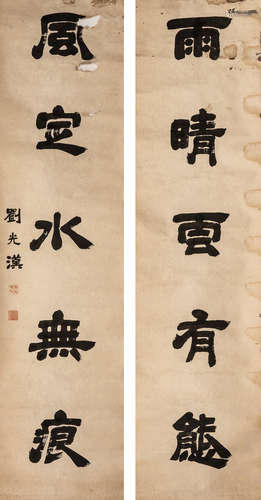 雨晴雲有態
風定水無痕
劉光漢